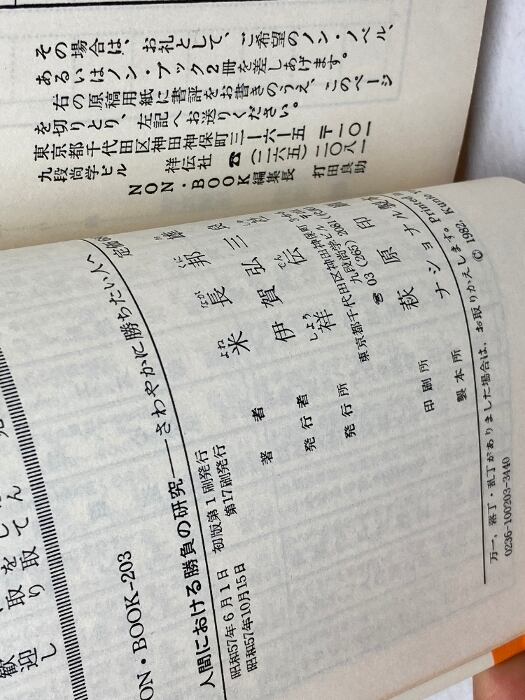 その場合は、お礼として、ご希望のノン・ノベル、
あるいはノン・ブック2冊を差しあげます。
右の原稿用紙に書評をお書きのうえ、このページ
を切りとり、左記へお送りください。
東京都千代田区神田神保町三―六―五 〒一〇一
九段尚学ビル 祥伝社 ☎(二六五)二〇八一
NON・BOOK編集長 打田良助
NON・BOOK-203
人間における勝負の研究――さわやかに勝ちたい人へ
昭和57年6月1日 初版第1刷発行
昭和57年10月15日 第17刷発行
著者 米長邦
発行者 伊賀弘三良
発行所 祥伝社
東京都千代田区神田神保町
九段尚学ビル
☎03(265)2081
印刷所 萩原印
製本所 ナショナル製
万一、落丁・乱丁がありました場合は、お取りかえします。Printed
0236-100203-3440
© 1982, Kunio